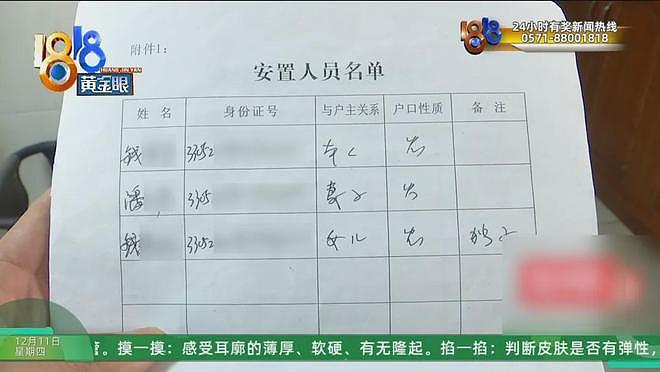 1818
黄金眼
HUANG JIN YAN
24小时有奖新闻热线
0571-88001818
附件1：
安置人员名单
姓 名 身份证号 与户主关系 户口性质 备 注
钱 33052 本人 农
潘 3305 妻子 农
钱 33052 女儿 农 独子
12月11日
星期四
摸一摸：感受耳廓的薄厚、软硬、有无隆起。掐一掐：判断皮肤是否有弹性，